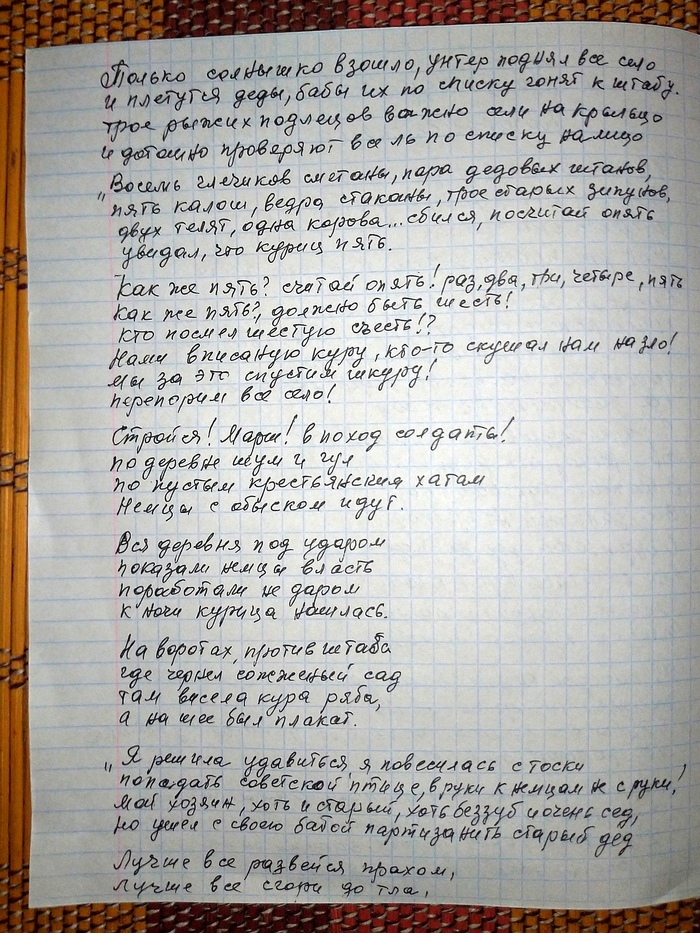 Только солнышко взошло, унтер поднял все село
и плетутся деды, бабы их по списку гонят к штабу.
трое рыжих подлецов важно сели на крыльцо
и дотошно проверяют все ль по списку налицо
„Восемь глечиков сметаны, пара дедовых штанов,
пять калош, ведра стаканы, трое старых зипунов,
двух телят, одна корова... сбился, посчитай опять
увидал, что куриц пять.
Как же пять? считай опять! раз, два, три, четыре, пять
Как же пять?, должно быть шесть!
кто посмел шестую съесть!?
Нами вписаную куру, кто-то скушал нам на зло!
мы за это спустим шкуру!
перепорим все село!
Стройся! Марш! в поход солдаты!
по деревне шум и гул
по пустым крестьянским хатам
Немцы с обыском идут.
Вся деревня под ударом
показали немцы власть
поработали не даром
к ночи курица нашлась.
На воротах, против штаба
где чернел сожженый сад
там висела кура ряба,
а на шее был плакат.
„Я решила удавиться, я повесилась с тоски
попадать советской птице, в руки к немцам не с руки!
мой хозяин, хоть и старый, хоть беззуб и очень сед,
но ушел с своею батой партизанить старый дед
Лучше все развейся прахом,
лучше все сгори до тла,